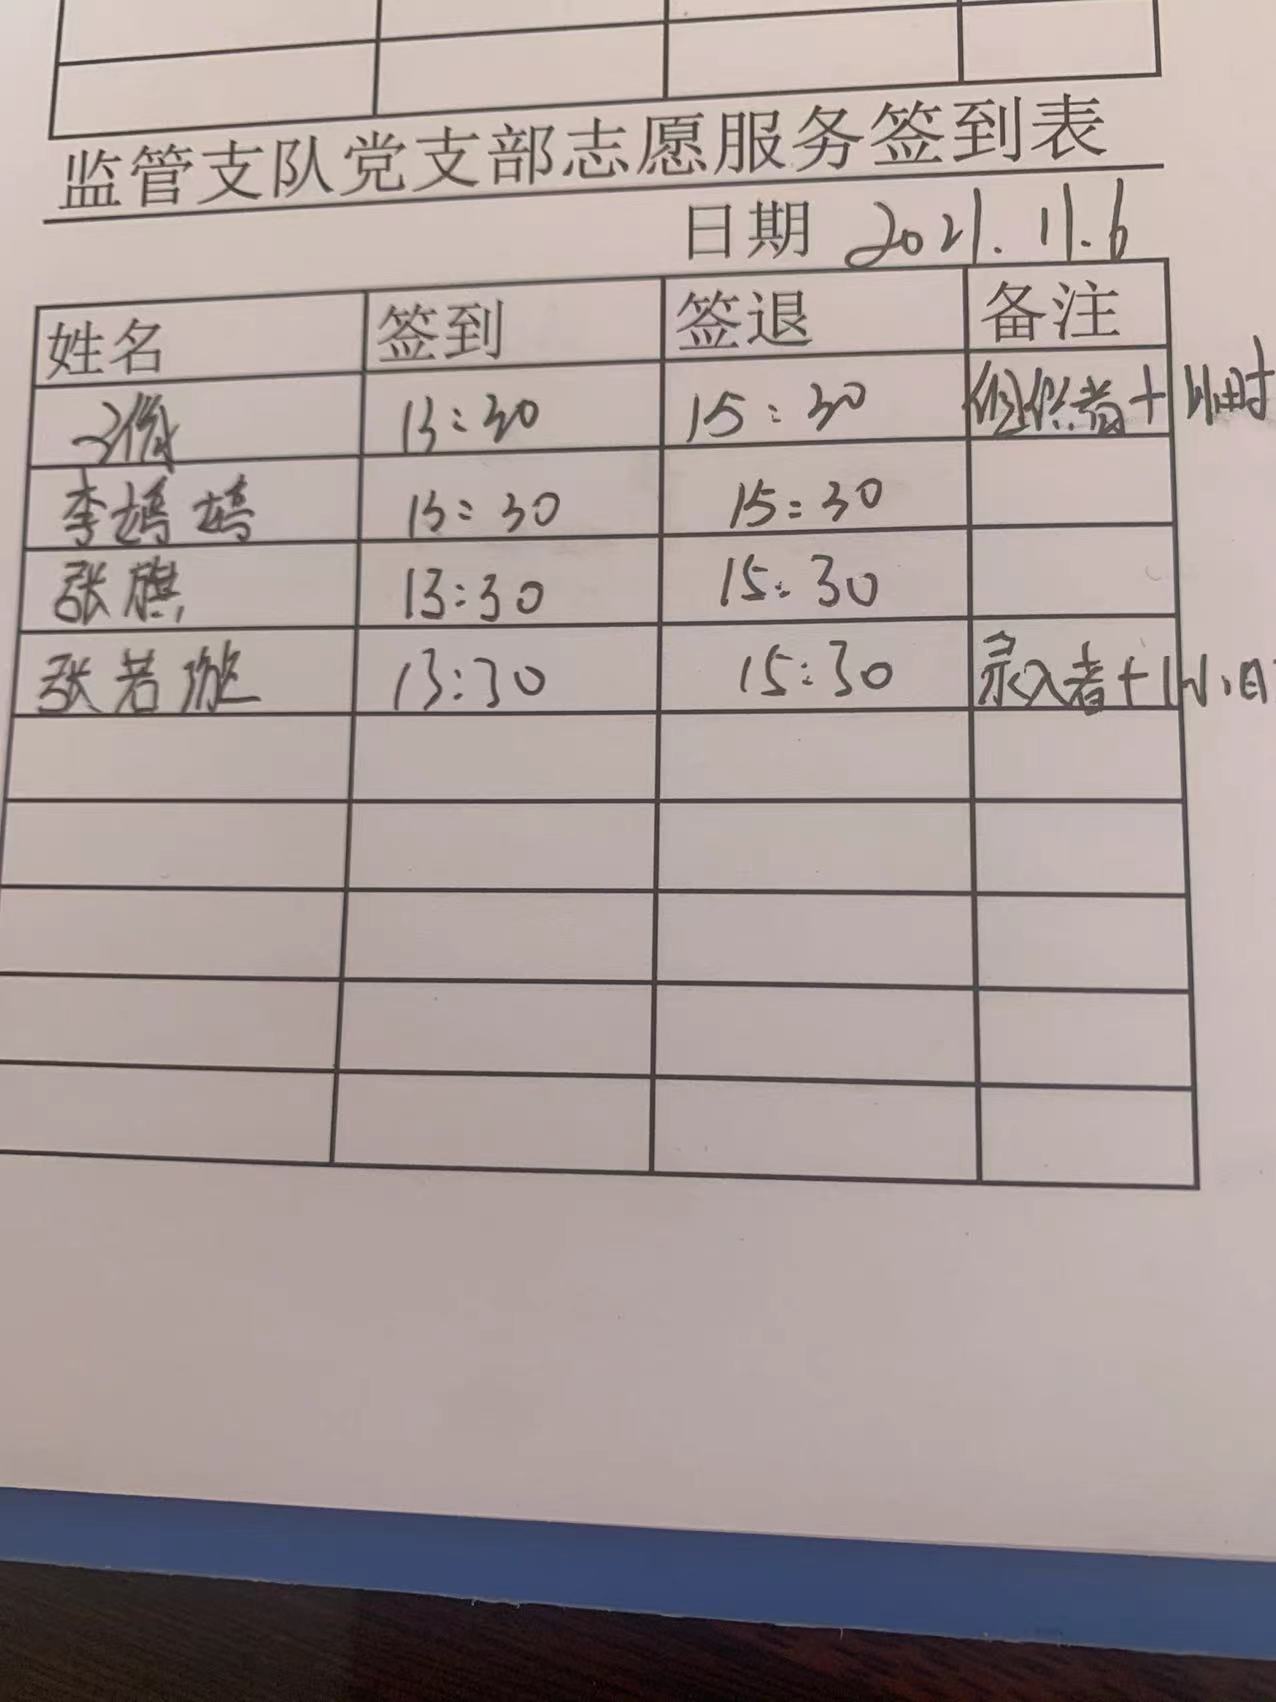 监管支队党支部志愿服务签到表
日期 2021.11.6
姓名 签到 签退 备注
13:30 15:30 组织者+1小时
李婷婷 13:30 15:30
张旗 13:30 15:30
张若璇 13:30 15:30 录入者+1小时